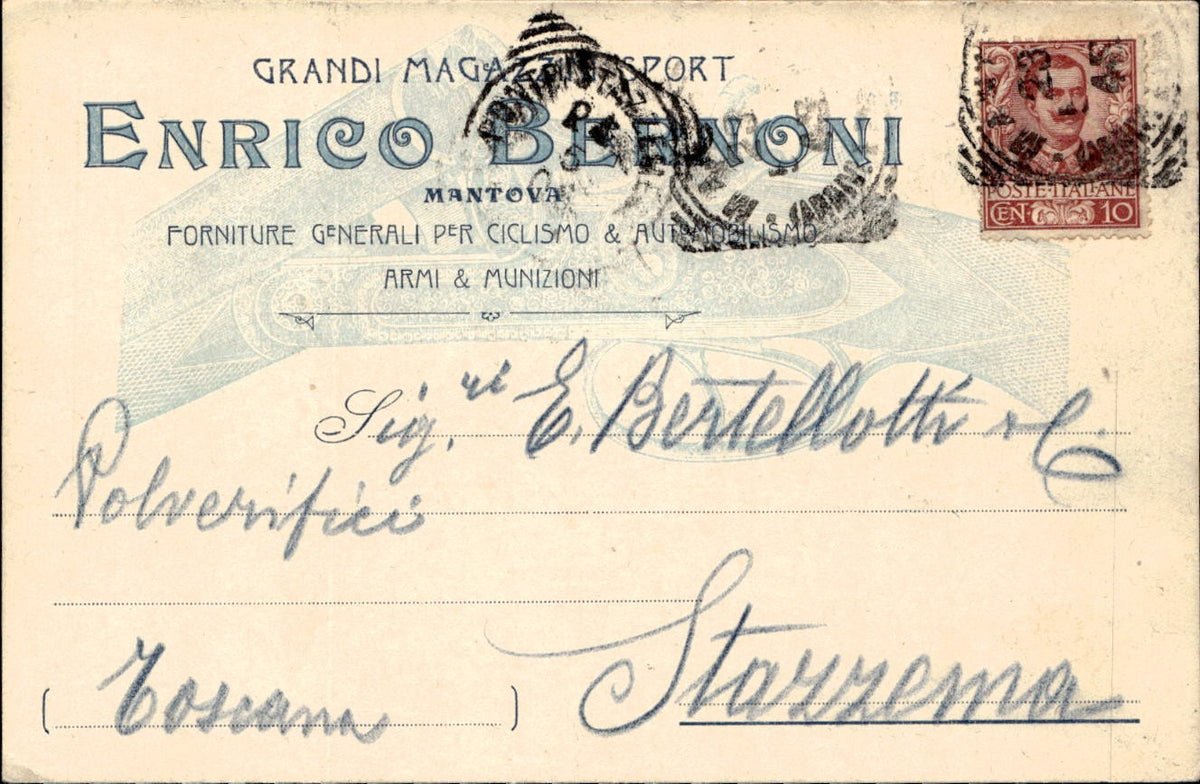 GRANDI MAGAZZINI SPORT
ENRICO BERNONI
MANTOVA
FORNITURE GENERALI PER CICLISMO & AUTOMOBILISMO
ARMI & MUNIZIONI
POSTE ITALIANE
CEN 10
Sig.ri E. Bertellotti e C.
Polverifici
Stazzema
(Toscana)